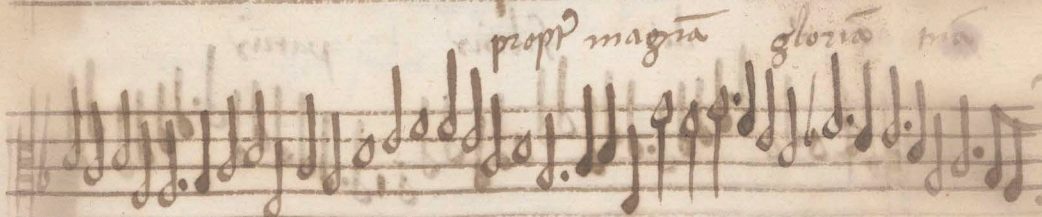 propt̃ magnā gloriā tuā